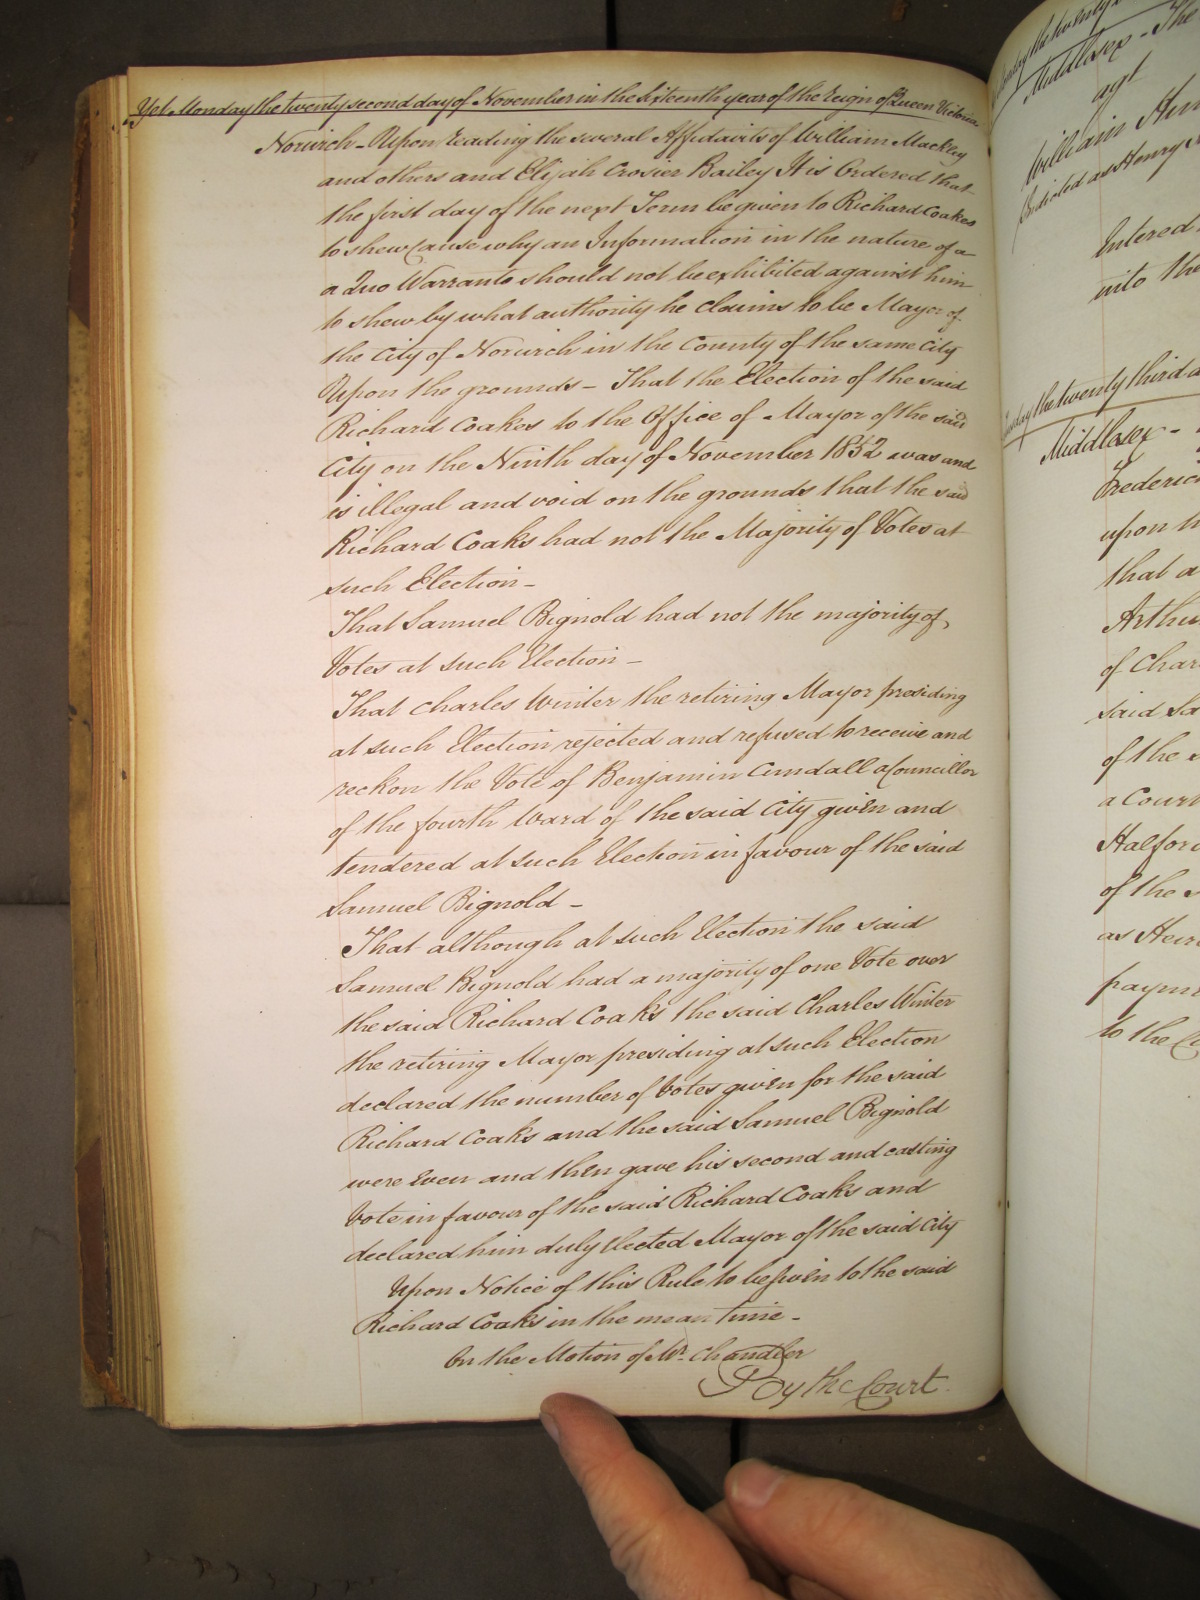 Yet Monday the twenty second day of November in the Sixteenth year of the Reign of Queen Victoria
Norwich - Upon reading the several Affidavits of William Mackley
and others and Elijah Crosier Bailey It is Ordered that
the first day of the next Term be given to Richard Coakes
to shew Cause why an Information in the nature of a
a Quo Warranto should not be exhibited against him
to shew by what authority he Claims to be Mayor of
the City of Norwich in the County of the same City
Upon the grounds - That the Election of the said
Richard Coakes to the Office of Mayor of the said
City on the Ninth day of November 1852 was and
is illegal and void on the grounds that the said
Richard Coaks had not the Majority of Votes at
such Election -
That Samuel Bignold had not the majority of
Votes at such Election -
That Charles Winter the retiring Mayor presiding
at such Election rejected and refused to receive and
reckon the Vote of Benjamin Cundall a Councillor
of the fourth Ward of the said City given and
tendered at such Election in favour of the said
Samuel Bignold -
That although at such Election the said
Samuel Bignold had a majority of one Vote over
the said Richard Coaks the said Charles Winter
the retiring Mayor presiding at such Election
declared the number of Votes given for the said
Richard Coaks and the said Samuel Bignold
were even and then gave his second and casting
Vote in favour of the said Richard Coaks and
declared him duly elected Mayor of the said City
Upon Notice of this Rule to be given to the said
Richard Coaks in the mean time -
On the Motion of Mr. Chandler
By the Court
the twenty
Middlesex - The
agt
William Hen
Indicted as Henry
Entered
into the
the twenty third
Middlesex -
Frederick
upon
that a
Arthur
of Char
said Sa
of the
a Court
Halford
of the s
as Heir
payme
to the